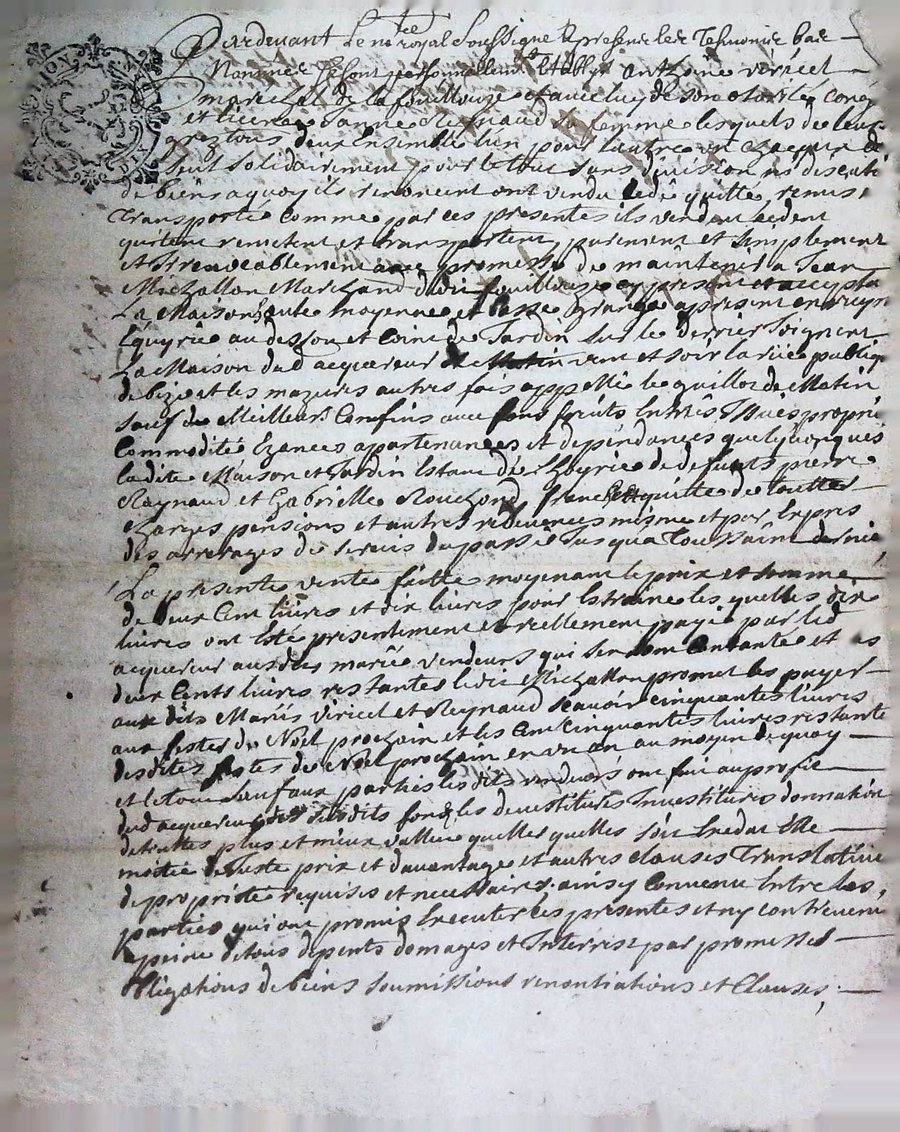 Pardevant le nre royal soussigné & presens les tesmoins bas
Nommes se sont personnellement Etablys anthoine viricel
marechal de la fouillouse et avec luy de son authorité, cong
et licence Janne Reynaud sa femme lesquels de leurs
grez tous deux Ensemble l'un pour l'autre un chacun de
seul solidairement pour le tout sans division ni discuti
de biens a quoy ils renoncent ont vendu cedé quitté, remis,
transporté comme par ces presentes ils vendent cedent
quitent remetent et transportent, purement et simplement
et irrevocablement avec promesse de maintenir a Jean
Michallon Marchand dudit fouillouse cy present et accepta
La Maison haute moyenne et basse grange a present en
Equyrie au dessou et coin de Jardin sur le derrier joignent
La Maison dud acquereur de Matin vent et soir la rüe publiq
de bize et les mazures autres fois appellé le quillot de Matin
sauf de Meilleurs Confins avec fons fruits Entrés issües proprie
commodité Ezances appartenances et dependances quelquonques
ladite Maison et Jardin Estant de l'hoyrie de defunts pierre
Raynaud et Gabrielle Rouchond, franche et quitte de touttes
charges pensions et autres redevences misme et par Expres
des arrerages de servis du passé jusqu'a Toussaint dernie
La presente vente faitte moyenant le prix et somme
de deux Cent livres et dix livres pour Estraine les quelles dix
livres ont Esté presentement et reellement payé par led
acquereur ausdits mariés vendeurs qui sen sont Contanté et
deux Cents livres restantes ledit Michallon promet les payer
aux dits Mariés viricel et Reynaud scavoir cinquantes livres
aux festes de Noël prochain et les Cent Cinquantes livres restante
desdites festes de Noël prochain en un an au moyen de quoy
et le tout sauf aux parties lesdits vendeurs ont fait au profit
dud acquereur des susdits fonds les devestitures Investitures donnation
de touttes plus et mieux vallue quelles quelles soit Exedat Elle
moitié de Juste prix et davantage et autres clauses Translative
de proprieté requises et necessaires. ainsy Convenu Entre les
parties qui ont promis Executer les presentes et ny contreveni
a peine de tous depents domages et Interrest par promesses
obligations de biens soumissions renontiations et Clauses,